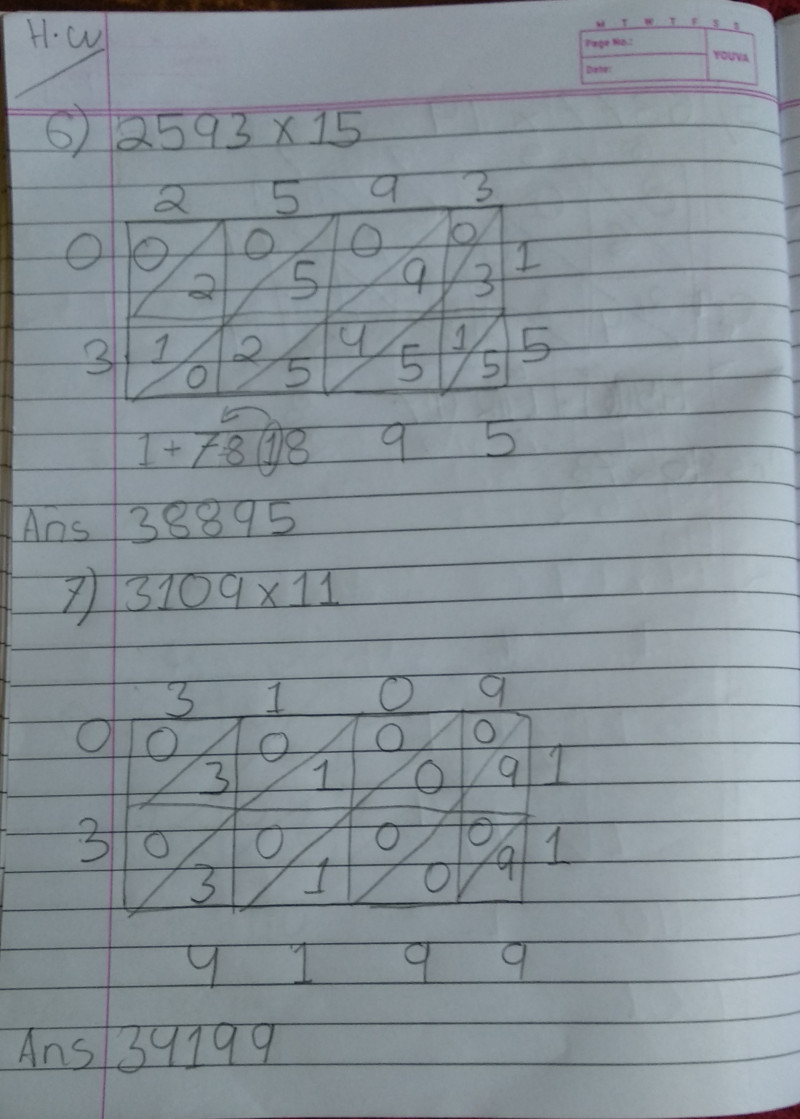 H.W
M T W T F S S
Page No.:
Date:
YOUVA
6) 2593 x 15
2 5 9 3
0 0 0 0 0 1
2 5 9 3
3 1 2 4 1 5
0 5 5 5
1 + 7 8 18 9 5
Ans 38895
7) 3109 x 11
3 1 0 9
0 0 0 0 0 1
3 1 0 9
3 0 0 0 0 1
3 1 0 9
4 1 9 9
Ans 34199